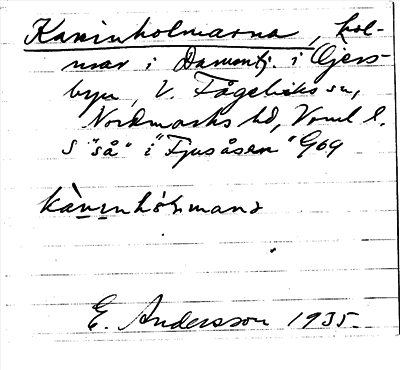 Kaninholmarna, hol-
mar i Dammtj. i Öjers-
byn, V. Fågelviks sn,
Nordmarks hd, Vrml l.
S "så" i "Fjusåsen" G69
kàninhòlmana
E. Andersson 1935.